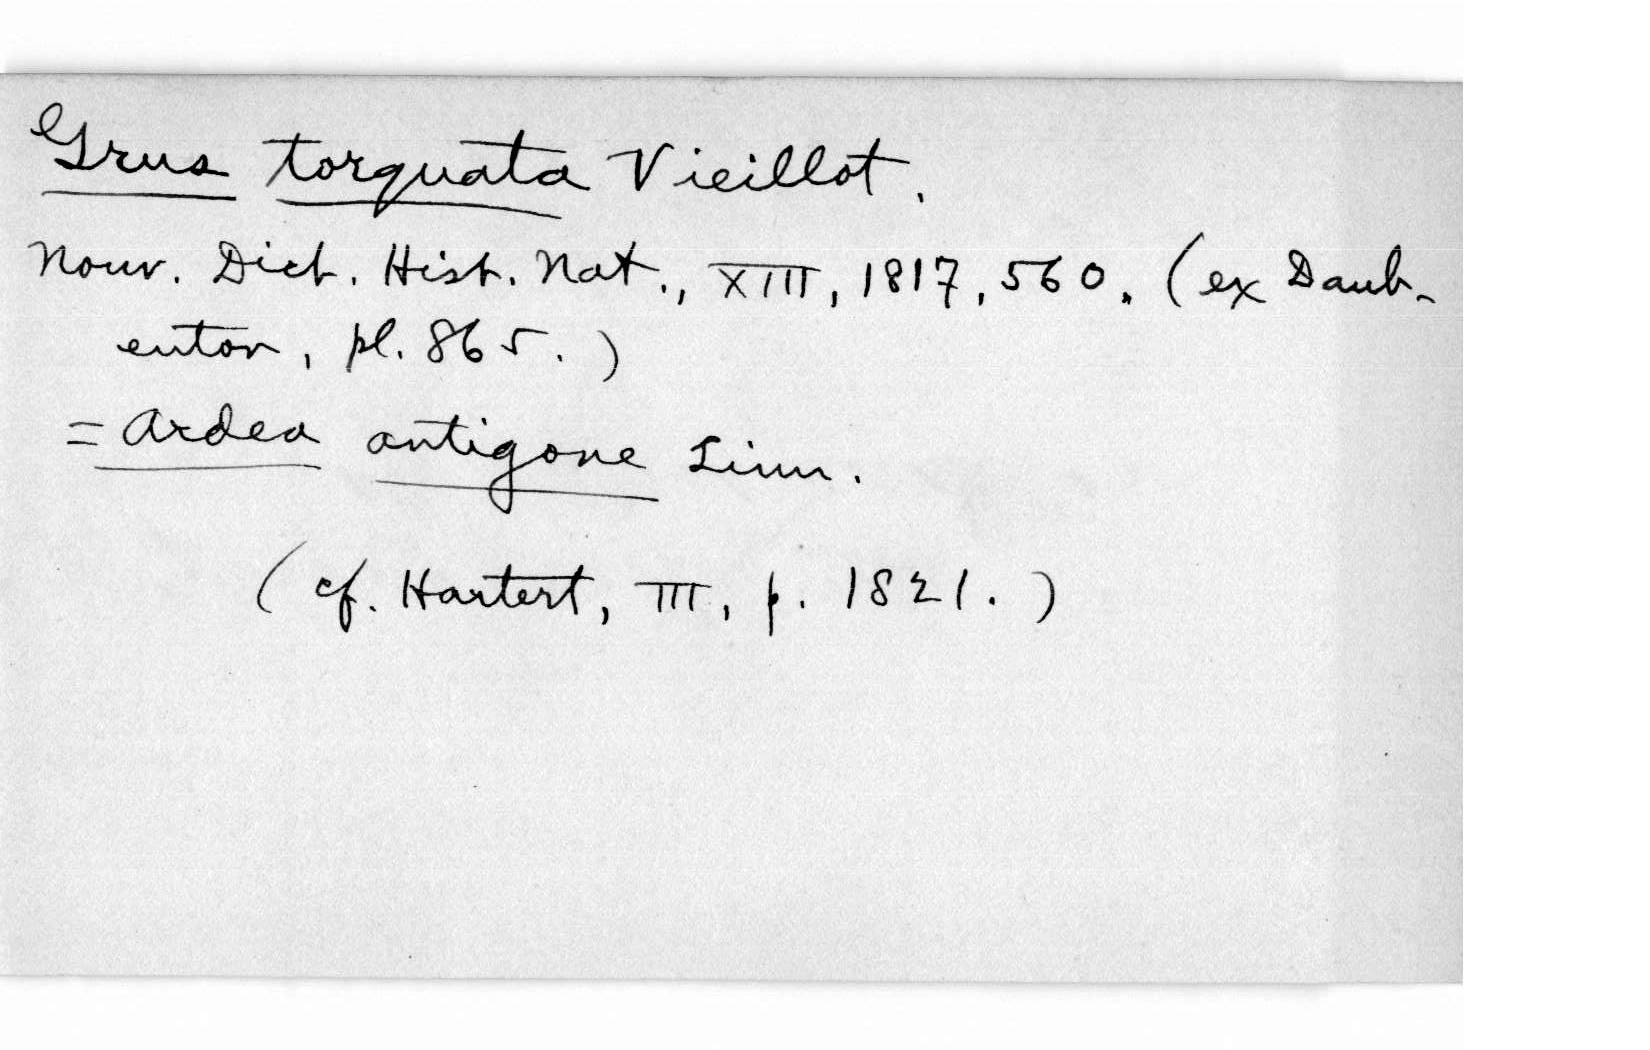 Grus torquata Vieillot.
Nouv. Dict. Hist. Nat., XIII, 1817, 560. (ex Daub-
enton, pl. 865.)
= Ardea antigone Linn.
(cf. Hartert, III, p. 1821.)